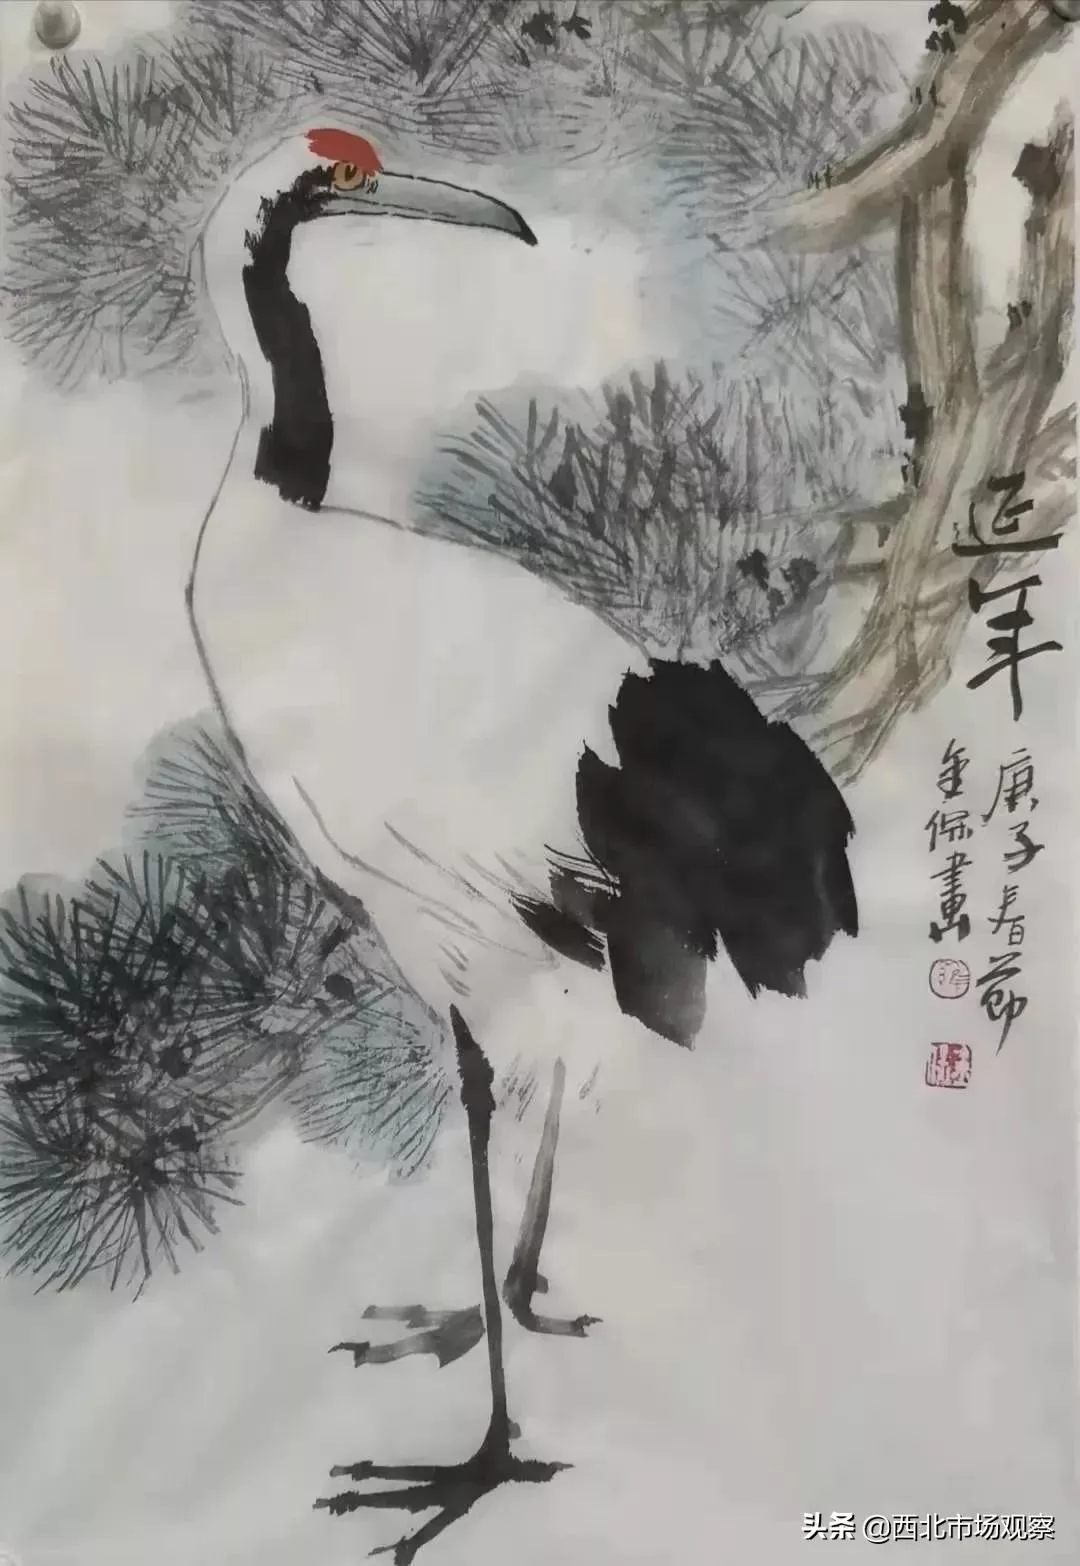 延年
庚子春节
金保画
头条 @西北市场观察